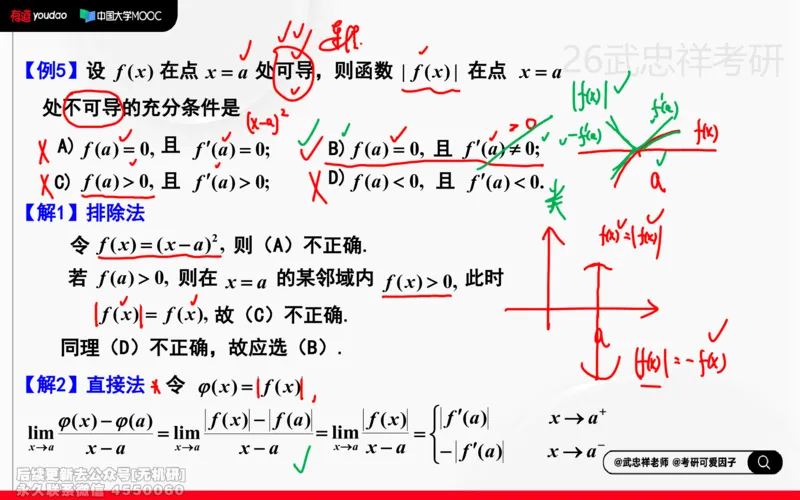 有道youdao 中国大学MOOC
26武忠祥考研
连续.
【例5】设 f(x) 在点 x = a 处可导，则函数 |f(x)| 在点 x = a
处不可导的充分条件是
(x-a)²
= 0
|f(x)|
f'(a)
-f'(a)
f(x)
a
A) f(a) = 0, 且 f′(a) = 0; B) f(a) = 0, 且 f′(a) ≠ 0;
C) f(a) > 0, 且 f′(a) > 0; D) f(a) < 0, 且 f′(a) < 0.
【解1】排除法
令 f(x) = (x − a)², 则（A）不正确.
f(x) = |f(x)|
若 f(a) > 0, 则在 x = a 的某邻域内 f(x) > 0, 此时
|f(x)| = f(x), 故（C）不正确.
a
同理（D）不正确，故应选（B）.
|f(x)| = -f(x)
【解2】直接法 令 φ(x) = |f(x)|,
lim x→a (φ(x) − φ(a))/(x − a) = lim x→a (|f(x)| − |f(a)|)/(x − a) = lim x→a |f(x)|/(x − a) = { |f′(a)| x → a⁺
−|f′(a)| x → a⁻
@武忠祥老师 @考研可爱因子
后续更新去公众号[无机研]
永久联系微信 4550060